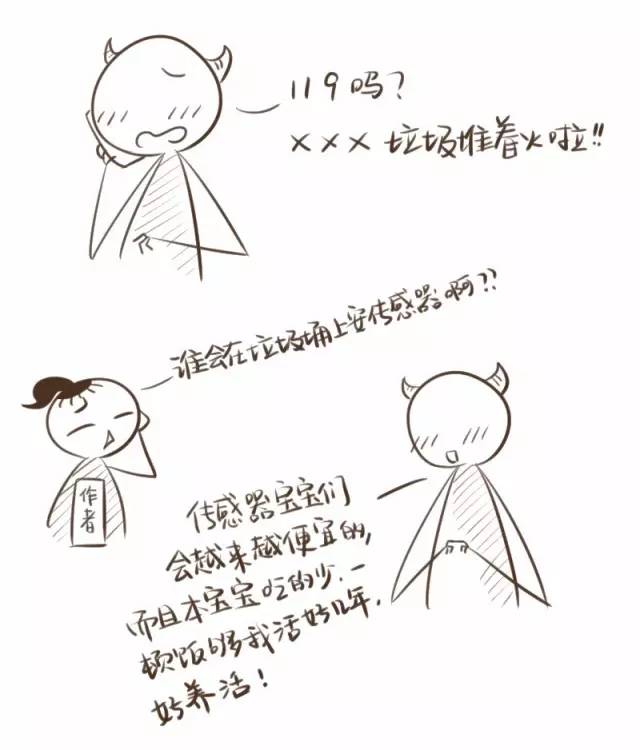 119吗?
××× 垃圾堆着火啦!!
谁会在垃圾桶上安传感器啊??
作者
传感器宝宝们
会越来越便宜的,
而且本宝宝吃的少.一
顿饭够我活好几年,
好养活!